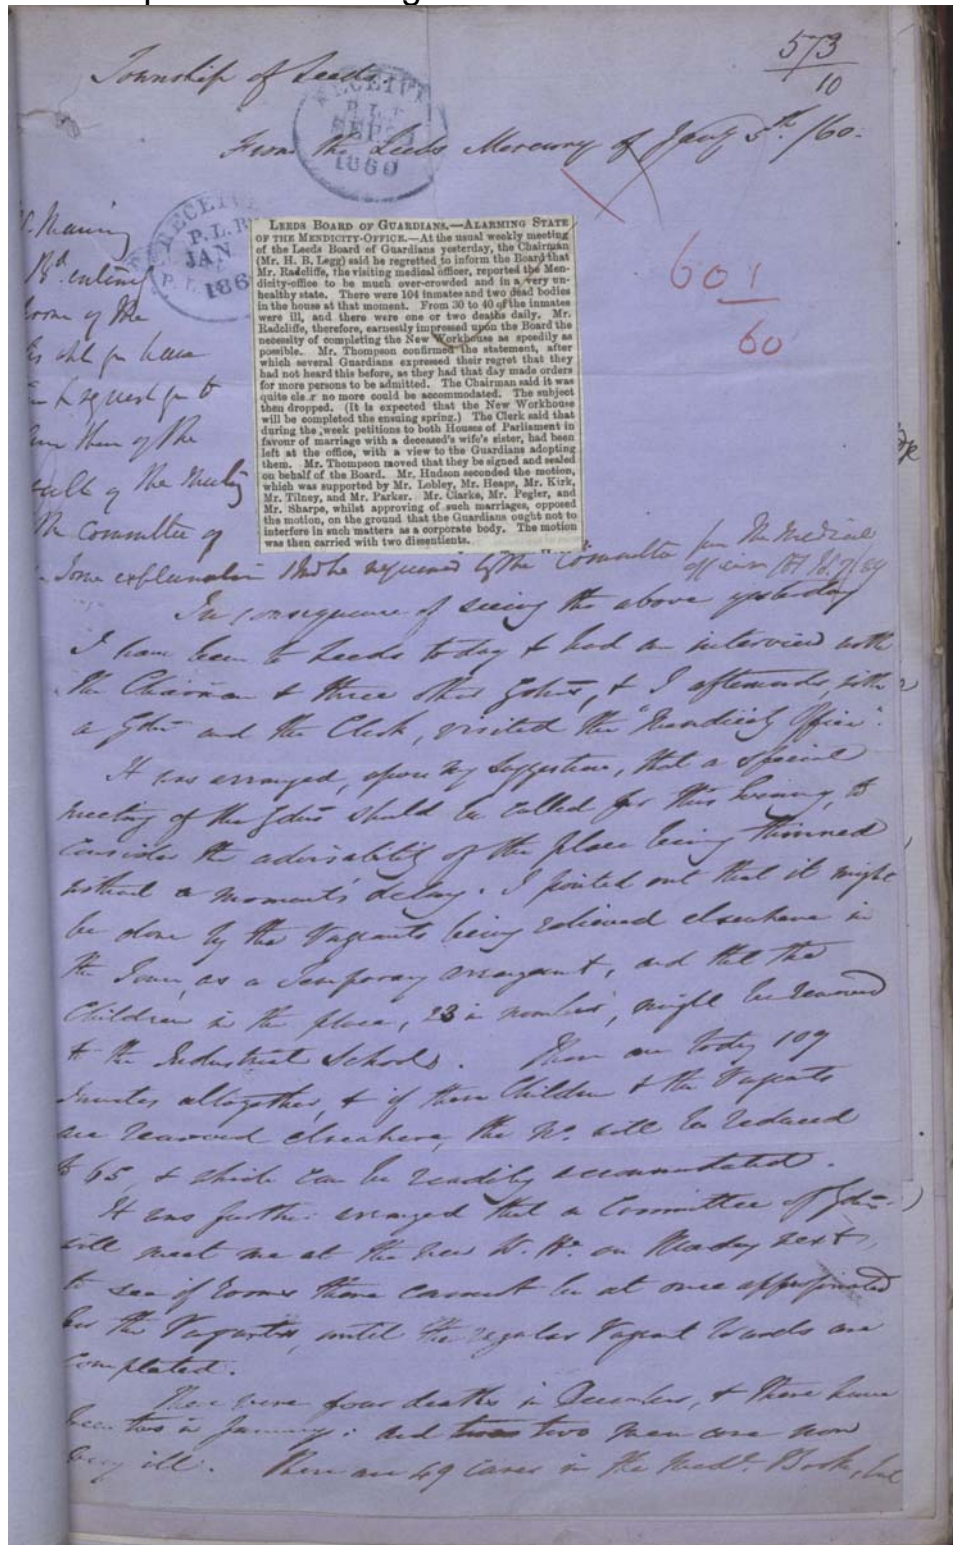 573
10
Township of Leeds.
RECEIVED
P. L. B.
1860
From the Leeds Mercury of Jany 5th /60.
RECEIVE
P. L. B
JAN
P. L.
186
601
60
LEEDS BOARD OF GUARDIANS.—ALARMING STATE
OF THE MENDICITY-OFFICE.—At the usual weekly meeting
of the Leeds Board of Guardians yesterday, the Chairman
(Mr. H. B. Legg) said he regretted to inform the Board that
Mr. Radcliffe, the visiting medical officer, reported the Men-
dicity-office to be much over-crowded and in a very un-
healthy state. There were 104 inmates and two dead bodies
in the house at that moment. From 30 to 40 of the inmates
were ill, and there were one or two deaths daily. Mr.
Radcliffe, therefore, earnestly impressed upon the Board the
necessity of completing the New Workhouse as speedily as
possible. Mr. Thompson confirmed the statement, after
which several Guardians expressed their regret that they
had not heard this before, as they had that day made orders
for more persons to be admitted. The Chairman said it was
quite cle r no more could be accommodated. The subject
then dropped. (It is expected that the New Workhouse
will be completed the ensuing spring.) The Clerk said that
during the week petitions to both Houses of Parliament in
favour of marriage with a deceased's wife's sister, had been
left at the office, with a view to the Guardians adopting
them. Mr. Thompson moved that they be signed and sealed
on behalf of the Board. Mr. Hudson seconded the motion,
which was supported by Mr. Lobley, Mr. Heaps, Mr. Kirk,
Mr. Tilney, and Mr. Parker. Mr. Clarke, Mr. Pegler, and
Mr. Sharpe, whilst approving of such marriages, opposed
the motion, on the ground that the Guardians ought not to
interfere in such matters as a corporate body. The motion
was then carried with two dissentients.
of the
request
them of the
of the Meeting
the Committee of
Some explanation required by the Committee from the medical
officer
In consequence of seeing the above yesterday
I have been to Leeds today & had an interview with
the Chairman & three other Gdns, & I afterwards, with
a Gdn and the Clerk, visited the "Mendicity Office".
It was arranged, upon my suggestion, that a special
meeting of the Gdns should be called for this evening, to
consider the advisability of the place being thinned
without a moment's delay. I pointed out that it might
be done by the Vagrants being relieved elsewhere in
the Town, as a temporary arrangemt, and that the
Children in the place, 23 in number, might be removed
to the Industrial Schools. There are today 109
Inmates altogether, & if these Children & the Vagrants
are removed elsewhere, the No. will be reduced
to 65, & which can be readily accommodated.
It was further arranged that a Committee of Gdns
will meet me at the new W. Ho. on Monday next,
to see if rooms there cannot be at once appropriated
for the Vagrants, until the regular Vagrant Wards are
completed.
There were four deaths in December, & there have
been two in January: and two men are now
very ill. There are 49 cases in the Medl. Book, but